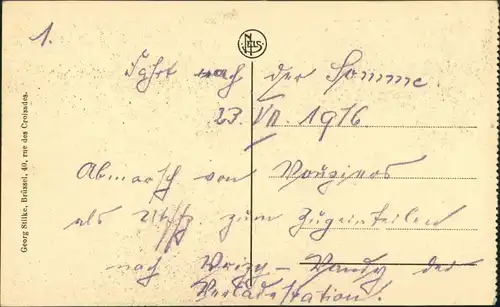 1.
NELS
Fahrt nach der Somme.
23. VII. 1916
Abmarsch von Vouziers
als zum Zugeinteilen
nach Vrizy - Vandy der
Verladestation.
Georg Stilke, Brüssel, 40, rue des Croisades.